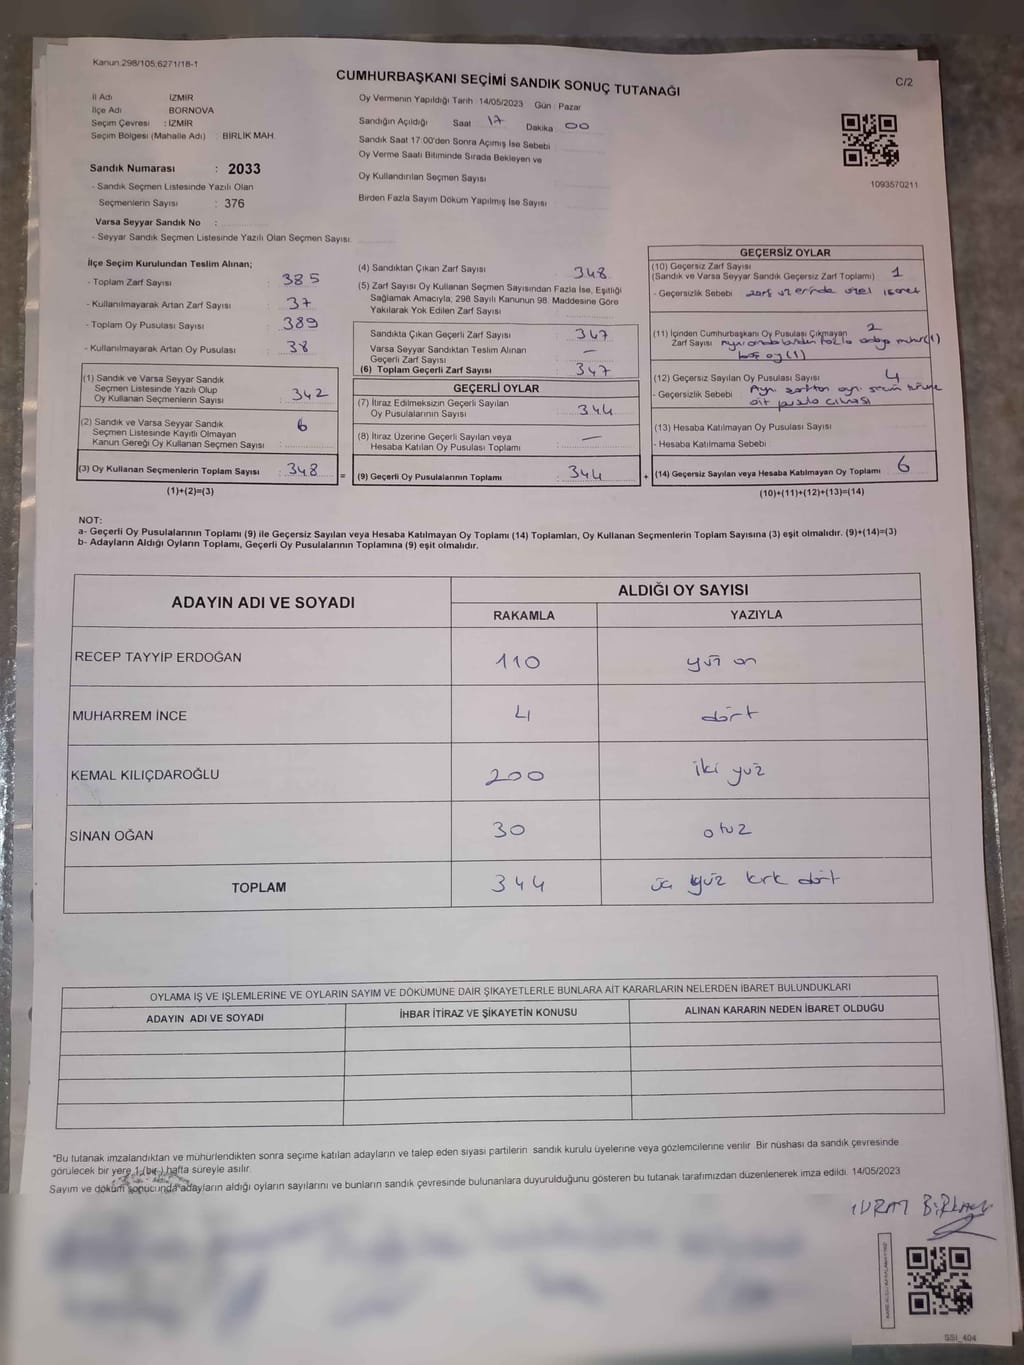 Kanun.298/105;6271/18-1
CUMHURBAŞKANI SEÇİMİ SANDIK SONUÇ TUTANAĞI
C/2
İl Adı İZMİR
İlçe Adı BORNOVA
Seçim Çevresi : İZMİR
Seçim Bölgesi (Mahalle Adı) : BİRLİK MAH.
Sandık Numarası : 2033
- Sandık Seçmen Listesinde Yazılı Olan
Seçmenlerin Sayısı : 376
Varsa Seyyar Sandık No :
- Seyyar Sandık Seçmen Listesinde Yazılı Olan Seçmen Sayısı:
Oy Vermenin Yapıldığı Tarih : 14/05/2023 Gün : Pazar
Sandığın Açıldığı Saat 17 Dakika 00
Sandık Saat 17:00'den Sonra Açımış İse Sebebi
Oy Verme Saati Bitiminde Sırada Bekleyen ve
Oy Kullandırılan Seçmen Sayısı
Birden Fazla Sayım Döküm Yapılmış İse Sayısı
1093570211
İlçe Seçim Kurulundan Teslim Alınan;
- Toplam Zarf Sayısı : 385
- Kullanılmayarak Artan Zarf Sayısı : 37
- Toplam Oy Pusulası Sayısı : 389
- Kullanılmayarak Artan Oy Pusulası : 38
(1) Sandık ve Varsa Seyyar Sandık
Seçmen Listesinde Yazılı Olup
Oy Kullanan Seçmenlerin Sayısı : 342
(2) Sandık ve Varsa Seyyar Sandık
Seçmen Listesinde Kayıtlı Olmayan
Kanun Gereği Oy Kullanan Seçmen Sayısı : 6
(3) Oy Kullanan Seçmenlerin Toplam Sayısı : 348
(1)+(2)=(3)
(4) Sandıktan Çıkan Zarf Sayısı : 348
(5) Zarf Sayısı Oy Kullanan Seçmen Sayısından Fazla İse, Eşitliği
Sağlamak Amacıyla, 298 Sayılı Kanunun 98. Maddesine Göre
Yakılarak Yok Edilen Zarf Sayısı :
Sandıkta Çıkan Geçerli Zarf Sayısı : 347
Varsa Seyyar Sandıktan Teslim Alınan
Geçerli Zarf Sayısı : —
(6) Toplam Geçerli Zarf Sayısı : 347
GEÇERLİ OYLAR
(7) İtiraz Edilmeksizin Geçerli Sayılan
Oy Pusulalarının Sayısı : 344
(8) İtiraz Üzerine Geçerli Sayılan veya
Hesaba Katılan Oy Pusulası Toplamı : —
= (9) Geçerli Oy Pusulalarının Toplamı : 344 +
GEÇERSİZ OYLAR
(10) Geçersiz Zarf Sayısı
(Sandık ve Varsa Seyyar Sandık Geçersiz Zarf Toplamı) : 1
- Geçersizlik Sebebi zarf üzerinde özel işaret
(11) İçinden Cumhurbaşkanı Oy Pusulası Çıkmayan 2
Zarf Sayısı
boş oy (1)
(12) Geçersiz Sayılan Oy Pusulası Sayısı : 4
- Geçersizlik Sebebi Aynı zarftan ayrı seçim türüne
ait pusula çıkması
(13) Hesaba Katılmayan Oy Pusulası Sayısı
- Hesaba Katılmama Sebebi
(14) Geçersiz Sayılan veya Hesaba Katılmayan Oy Toplamı : 6
(10)+(11)+(12)+(13)=(14)
NOT:
a- Geçerli Oy Pusulalarının Toplamı (9) ile Geçersiz Sayılan veya Hesaba Katılmayan Oy Toplamı (14) Toplamları, Oy Kullanan Seçmenlerin Toplam Sayısına (3) eşit olmalıdır. (9)+(14)=(3)
b- Adayların Aldığı Oyların Toplamı, Geçerli Oy Pusulalarının Toplamına (9) eşit olmalıdır.
ADAYIN ADI VE SOYADI
ALDIĞI OY SAYISI
RAKAMLA YAZIYLA
RECEP TAYYİP ERDOĞAN 110 yüz on
MUHARREM İNCE 4 dört
KEMAL KILIÇDAROĞLU 200 iki yüz
SİNAN OĞAN 30 otuz
TOPLAM 344 üç yüz kırk dört
OYLAMA İŞ VE İŞLEMLERİNE VE OYLARIN SAYIM VE DÖKÜMÜNE DAİR ŞİKAYETLERLE BUNLARA AİT KARARLARIN NELERDEN İBARET BULUNDUKLARI
ADAYIN ADI VE SOYADI İHBAR İTİRAZ VE ŞİKAYETİN KONUSU ALINAN KARARIN NEDEN İBARET OLDUĞU
*Bu tutanak imzalandıktan ve mühürlendikten sonra seçime katılan adayların ve talep eden siyasi partilerin sandık kurulu üyelerine veya gözlemcilerine verilir. Bir nüshası da sandık çevresinde
görülecek bir yere 1 (bir) hafta süreyle asılır.
Sayım ve döküm sonucunda adayların aldığı oyların sayılarını ve bunların sandık çevresinde bulunanlara duyurulduğunu gösteren bu tutanak tarafımızdan düzenlenerek imza edildi. 14/05/2023
GSI_404